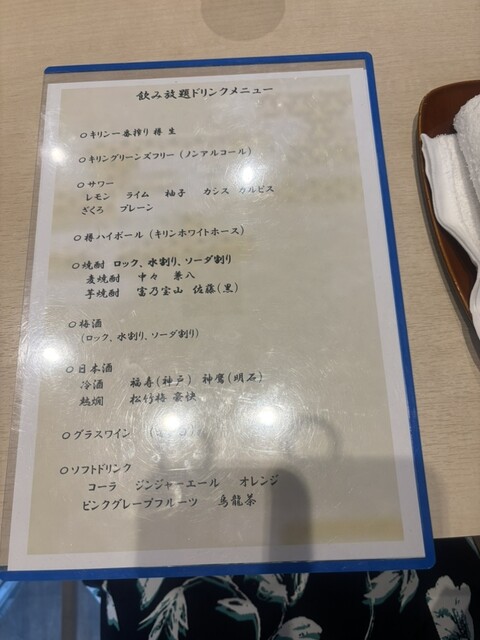 飲み放題ドリンクメニュー
○キリン一番搾り 樽 生
○キリングリーンズフリー（ノンアルコール）
○サワー
レモン ライム 柚子 カシス カルピス
ざくろ プレーン
○樽ハイボール（キリンホワイトホース）
○焼酎 ロック、水割り、ソーダ割り
麦焼酎 中々 兼八
芋焼酎 富乃宝山 佐藤(黒)
○梅酒
(ロック、水割り、ソーダ割り)
○日本酒
冷酒 福寿(神戸) 神鷹(明石)
熱燗 松竹梅 豪快
○グラスワイン
○ソフトドリンク
コーラ ジンジャーエール オレンジ
ピンクグレープフルーツ 烏龍茶